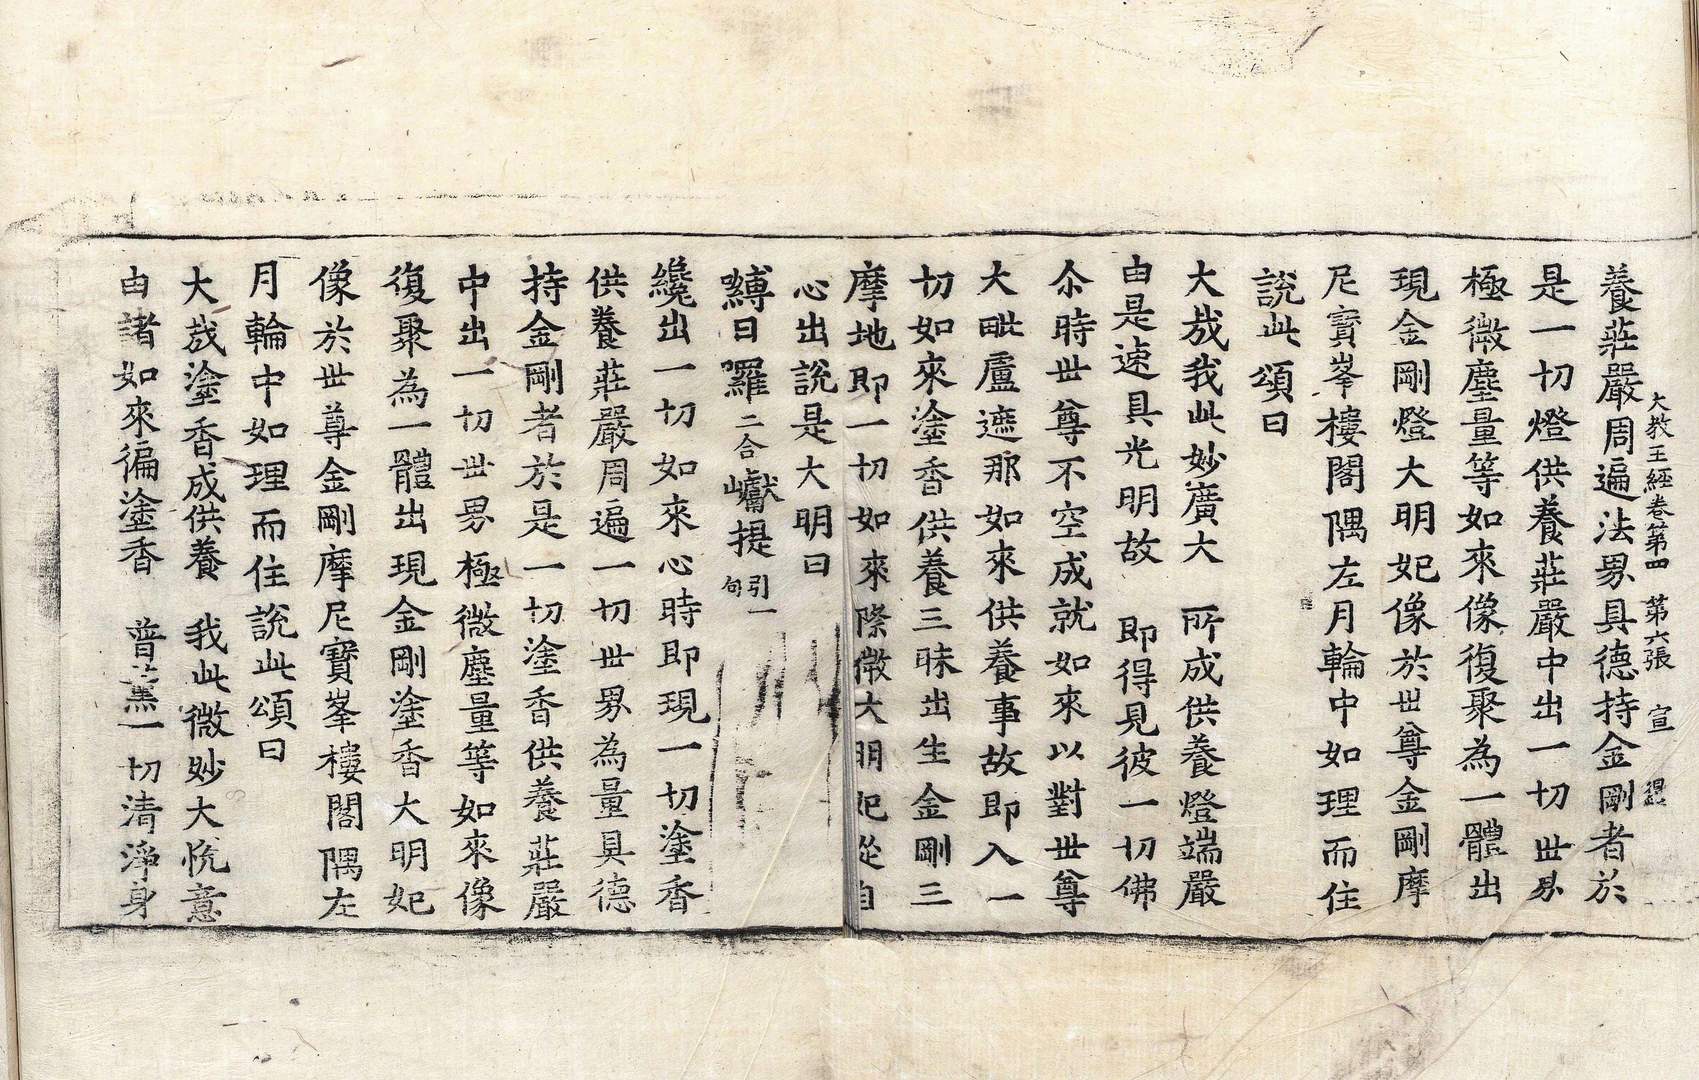 大教王經卷第四　第六張　宣
養莊嚴周遍法界具德持金剛者於
是一切燈供養莊嚴中出一切世界
極微塵量等如來像復聚為一體出
現金剛燈大明妃像於世尊金剛摩
尼寶峯樓閣隅左月輪中如理而住
說此頌曰
大哉我此妙廣大　所成供養燈端嚴
由是速具光明故　即得見彼一切佛
尒時世尊不空成就如來以對世尊
大毗盧遮那如來供養事故即入一
切如來塗香供養三昧出生金剛三
摩地即一切如來際微大明妃從自
心出說是大明曰
嚩日囉二合巘提引一句
纔出一切如來心時即現一切塗香
供養莊嚴周遍一切世界為量具德
持金剛者於是一切塗香供養莊嚴
中出一切世界極微塵量等如來像
復聚為一體出現金剛塗香大明妃
像於世尊金剛摩尼寶峯樓閣隅左
月輪中如理而住說此頌曰
大哉塗香成供養　我此微妙大悅意
由諸如來徧塗香　普薰一切清淨身